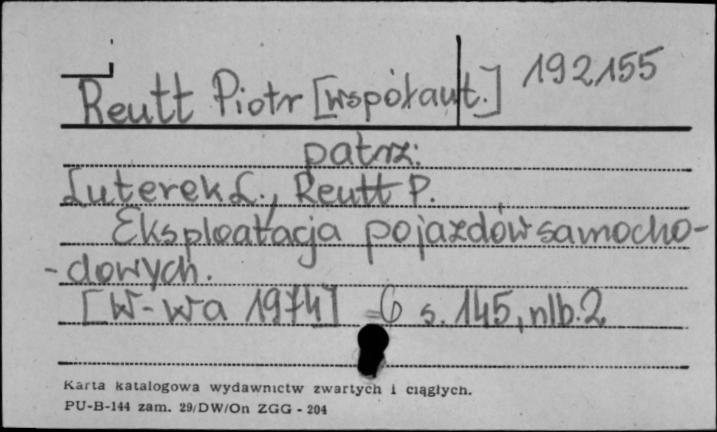 Reutt Piotr [współaut.] 192155
patrz:
Luterek L., Reutt P.
Eksploatacja pojazdów samocho-
-dowych.
[W-wa 1974] s. 145, nlb. 2
Karta katalogowa wydawnictw zwartych i ciągłych.
PU-B-144 zam. 29/DW/On ZGG - 204